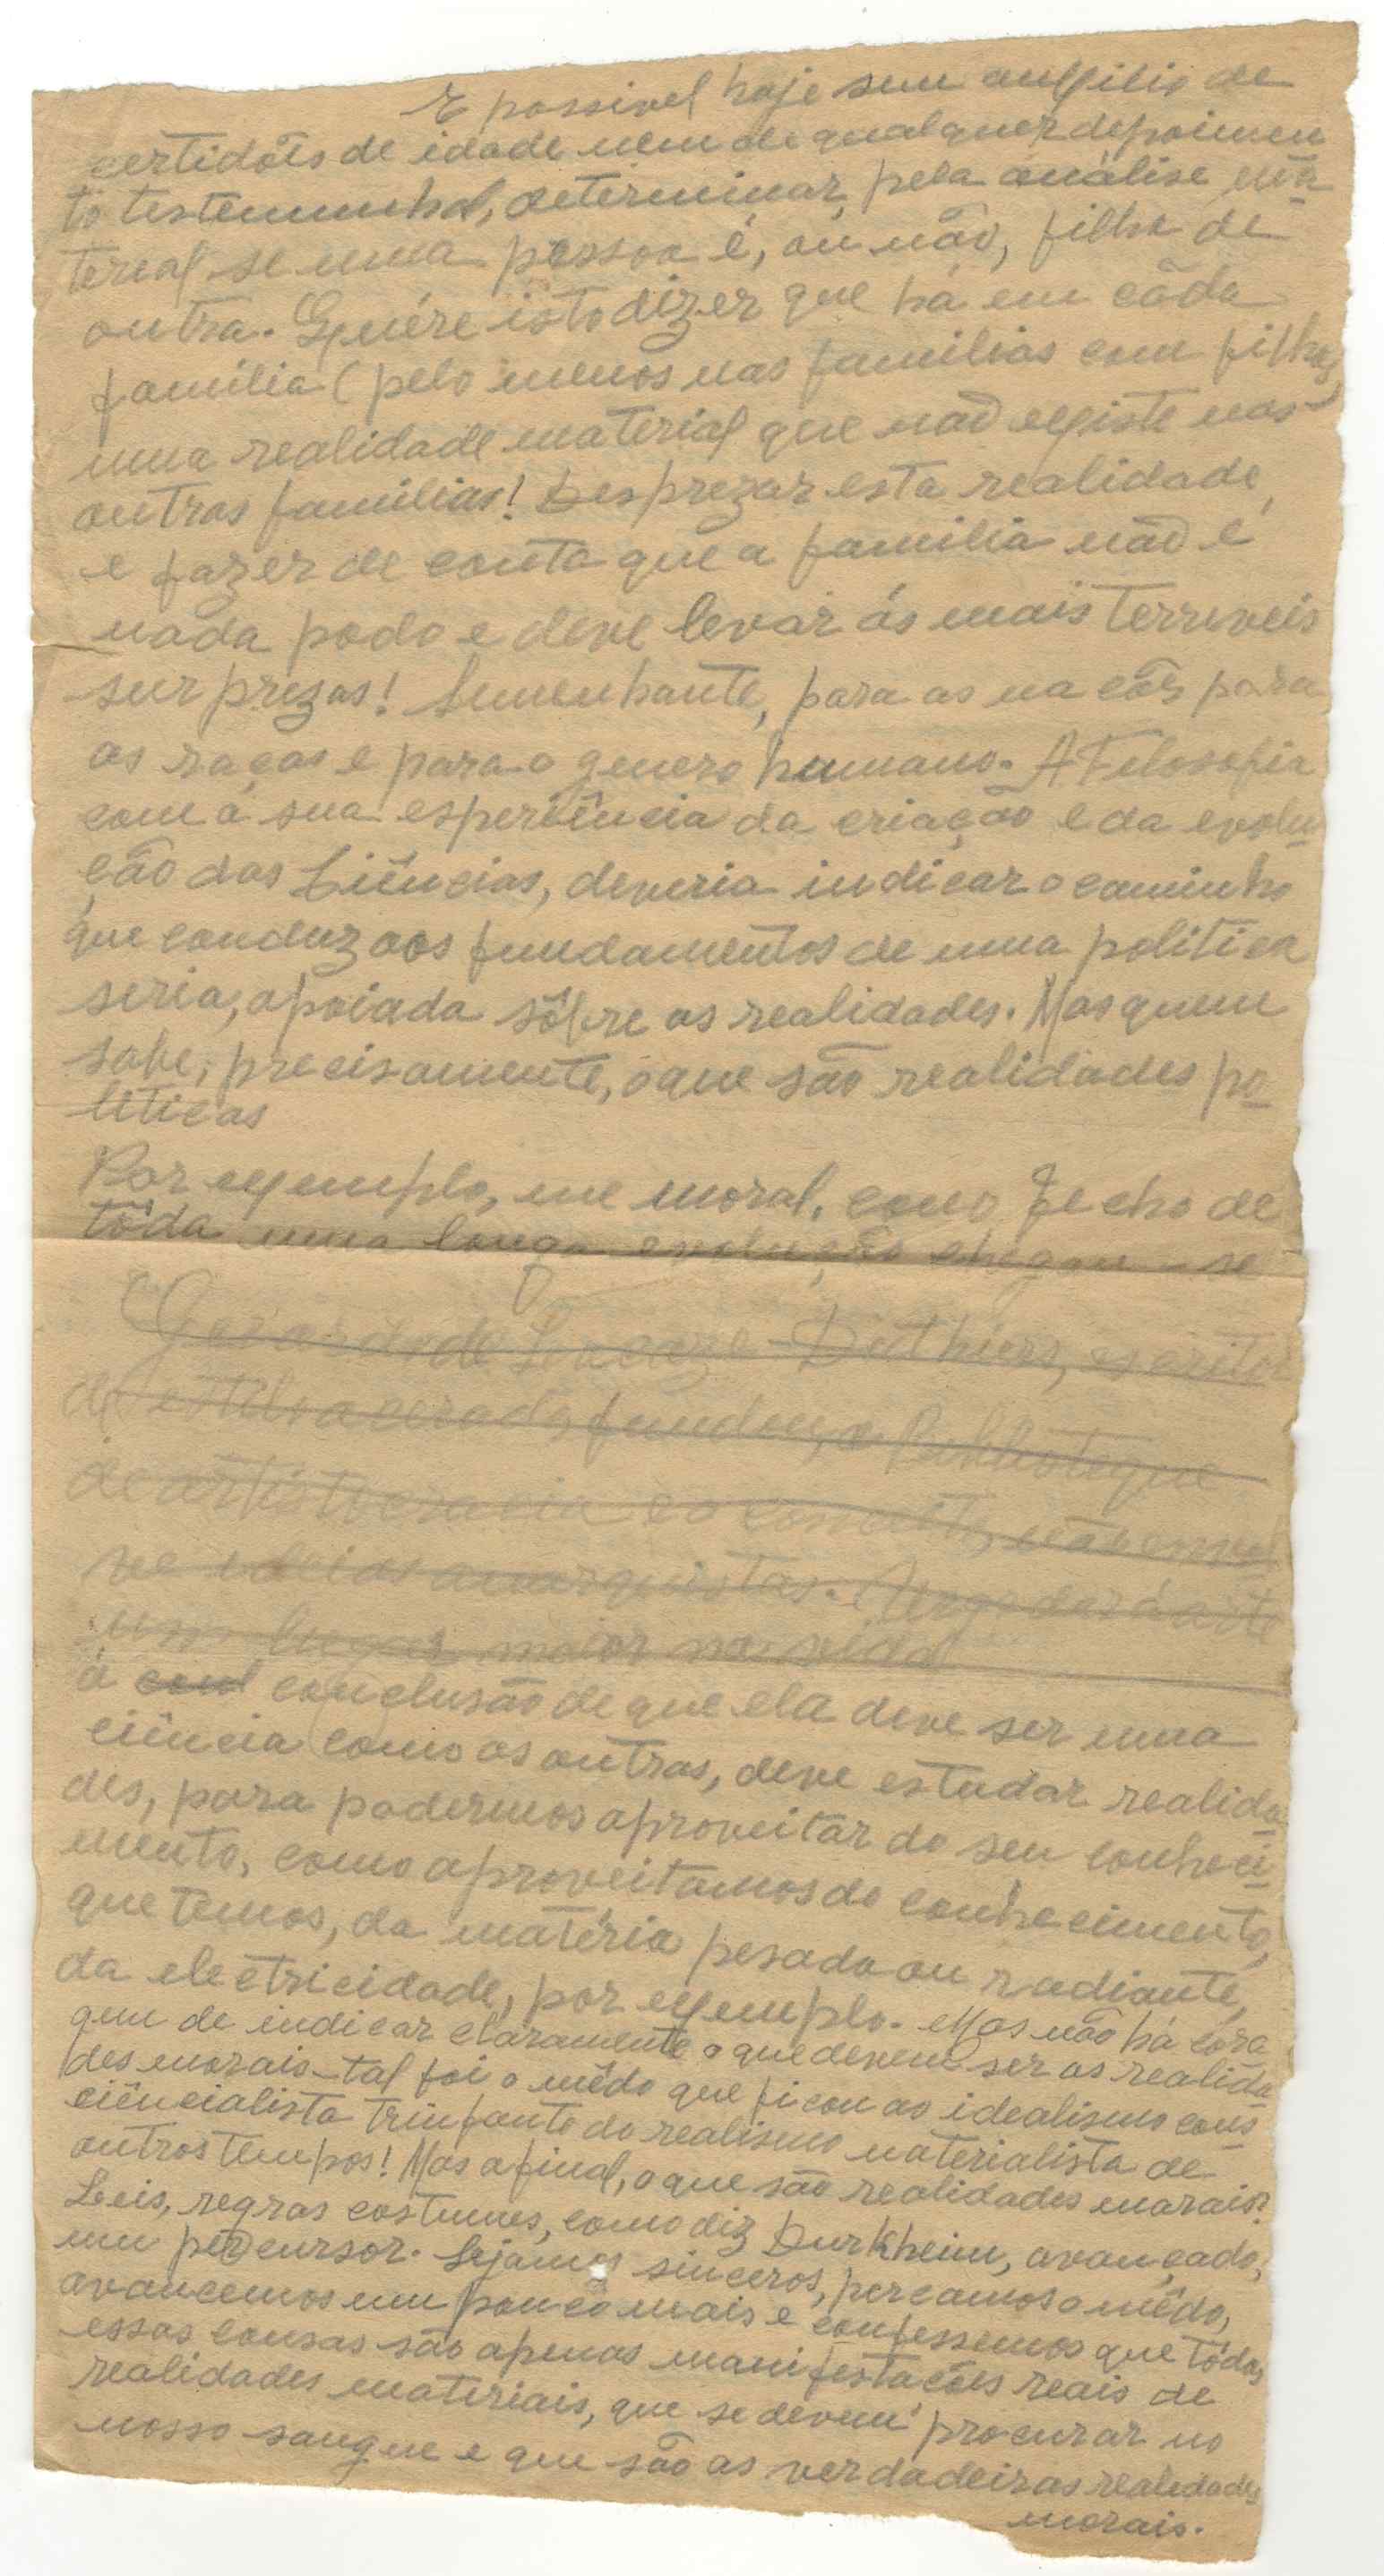 E possivel hoje sem auxilio de
certidões de idade nem de qualquer depoimen
to testemunhal, determinar, pela análise ma
terial se uma pessoa é, ou não, filha de
outra. Quére isto dizer que há em cada
familia (pelo menos nas familias com filhos)
uma realidade material que não existe nas
outras familias! Desprezar esta realidade,
e fazer de conta que a familia não é
nada pode e deve levar ás mais terriveis
surprezas! Semenhante, para as nações para
as raças e para o genero humano. A Filosofia
com a sua esperiência da criação e da evolu
ção das Ciências, deveria indicar o caminho
que conduz aos fundamentos de uma politica
seria, apoiada sôbre as realidades. Mas quem
sabe, precisamente, o que são realidades po
liticas
Por exemplo, na moral, como fecho de
tôda uma longa evolução chegou-se
Gerardo de Lacaze-Duthiers, escritor
de estilo acerado, fundou a Bibliotèque
de artistocracia e o
ve ideias anarquistas. Urge dar á arte
um lugar maior na vida
á conl conclusão de que ela deve ser uma
ciência como as outras, deve estudar realida
des, para podermos aproveitar do seu conheci
mento, como aproveitamos do conhecimento,
que temos, da matéria pesada ou radiante,
da electricidade, por exemplo. Mas não há cora
gem de indicar claramente o que devem ser as realida
des morais-tal foi o mêdo que ficou ao idealismo cons
ciêncialista triufante do realismo materialista de
outros tempos! Mas afinal, o que são realidades morais?
Leis, regras costumes, como diz Durkheim, avançado,
um percursor. Sejamos sinceros, percamos o mêdo,
avancemos um pouco mais e confessemos que tôdas
essas cousas são apenas manifestações reais de
realidades materiais, que se devem procurar no
nosso sangue e que são as verdadeiras realidades
morais.